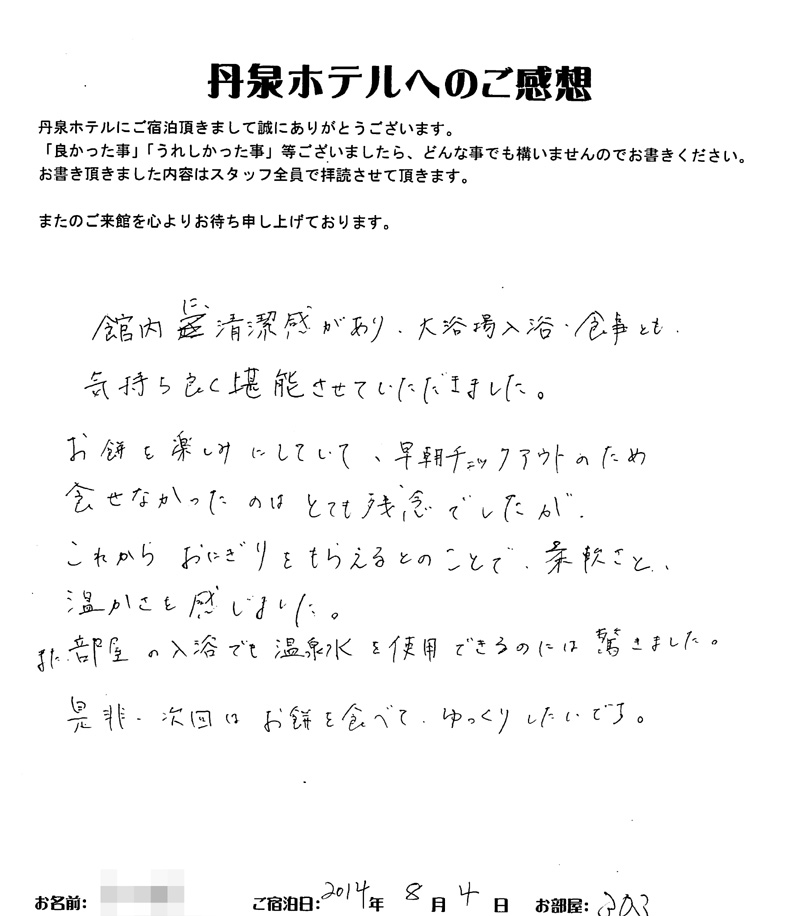 丹泉ホテルへのご感想
丹泉ホテルにご宿泊頂きまして誠にありがとうございます。
「良かった事」「うれしかった事」等ございましたら、どんな事でも構いませんのでお書きください。
お書き頂きました内容はスタッフ全員で拝読させて頂きます。
またのご来館を心よりお待ち申し上げております。
館内に、清潔感があり、大浴場入浴・食事とも、
気持ち良く堪能させていただきました。
お餅を楽しみにしていて、早朝チェックアウトのため
食せなかったのはとても残念でしたが、
これから おにぎりをもらえるとのことで、柔軟さと、
温かさを感じました。
また部屋の入浴でも温泉水を使用できるのには驚きました。
是非、次回はお餅を食べて、ゆっくりしたいです。
お名前: ご宿泊日:2014年 8月 4日 お部屋: